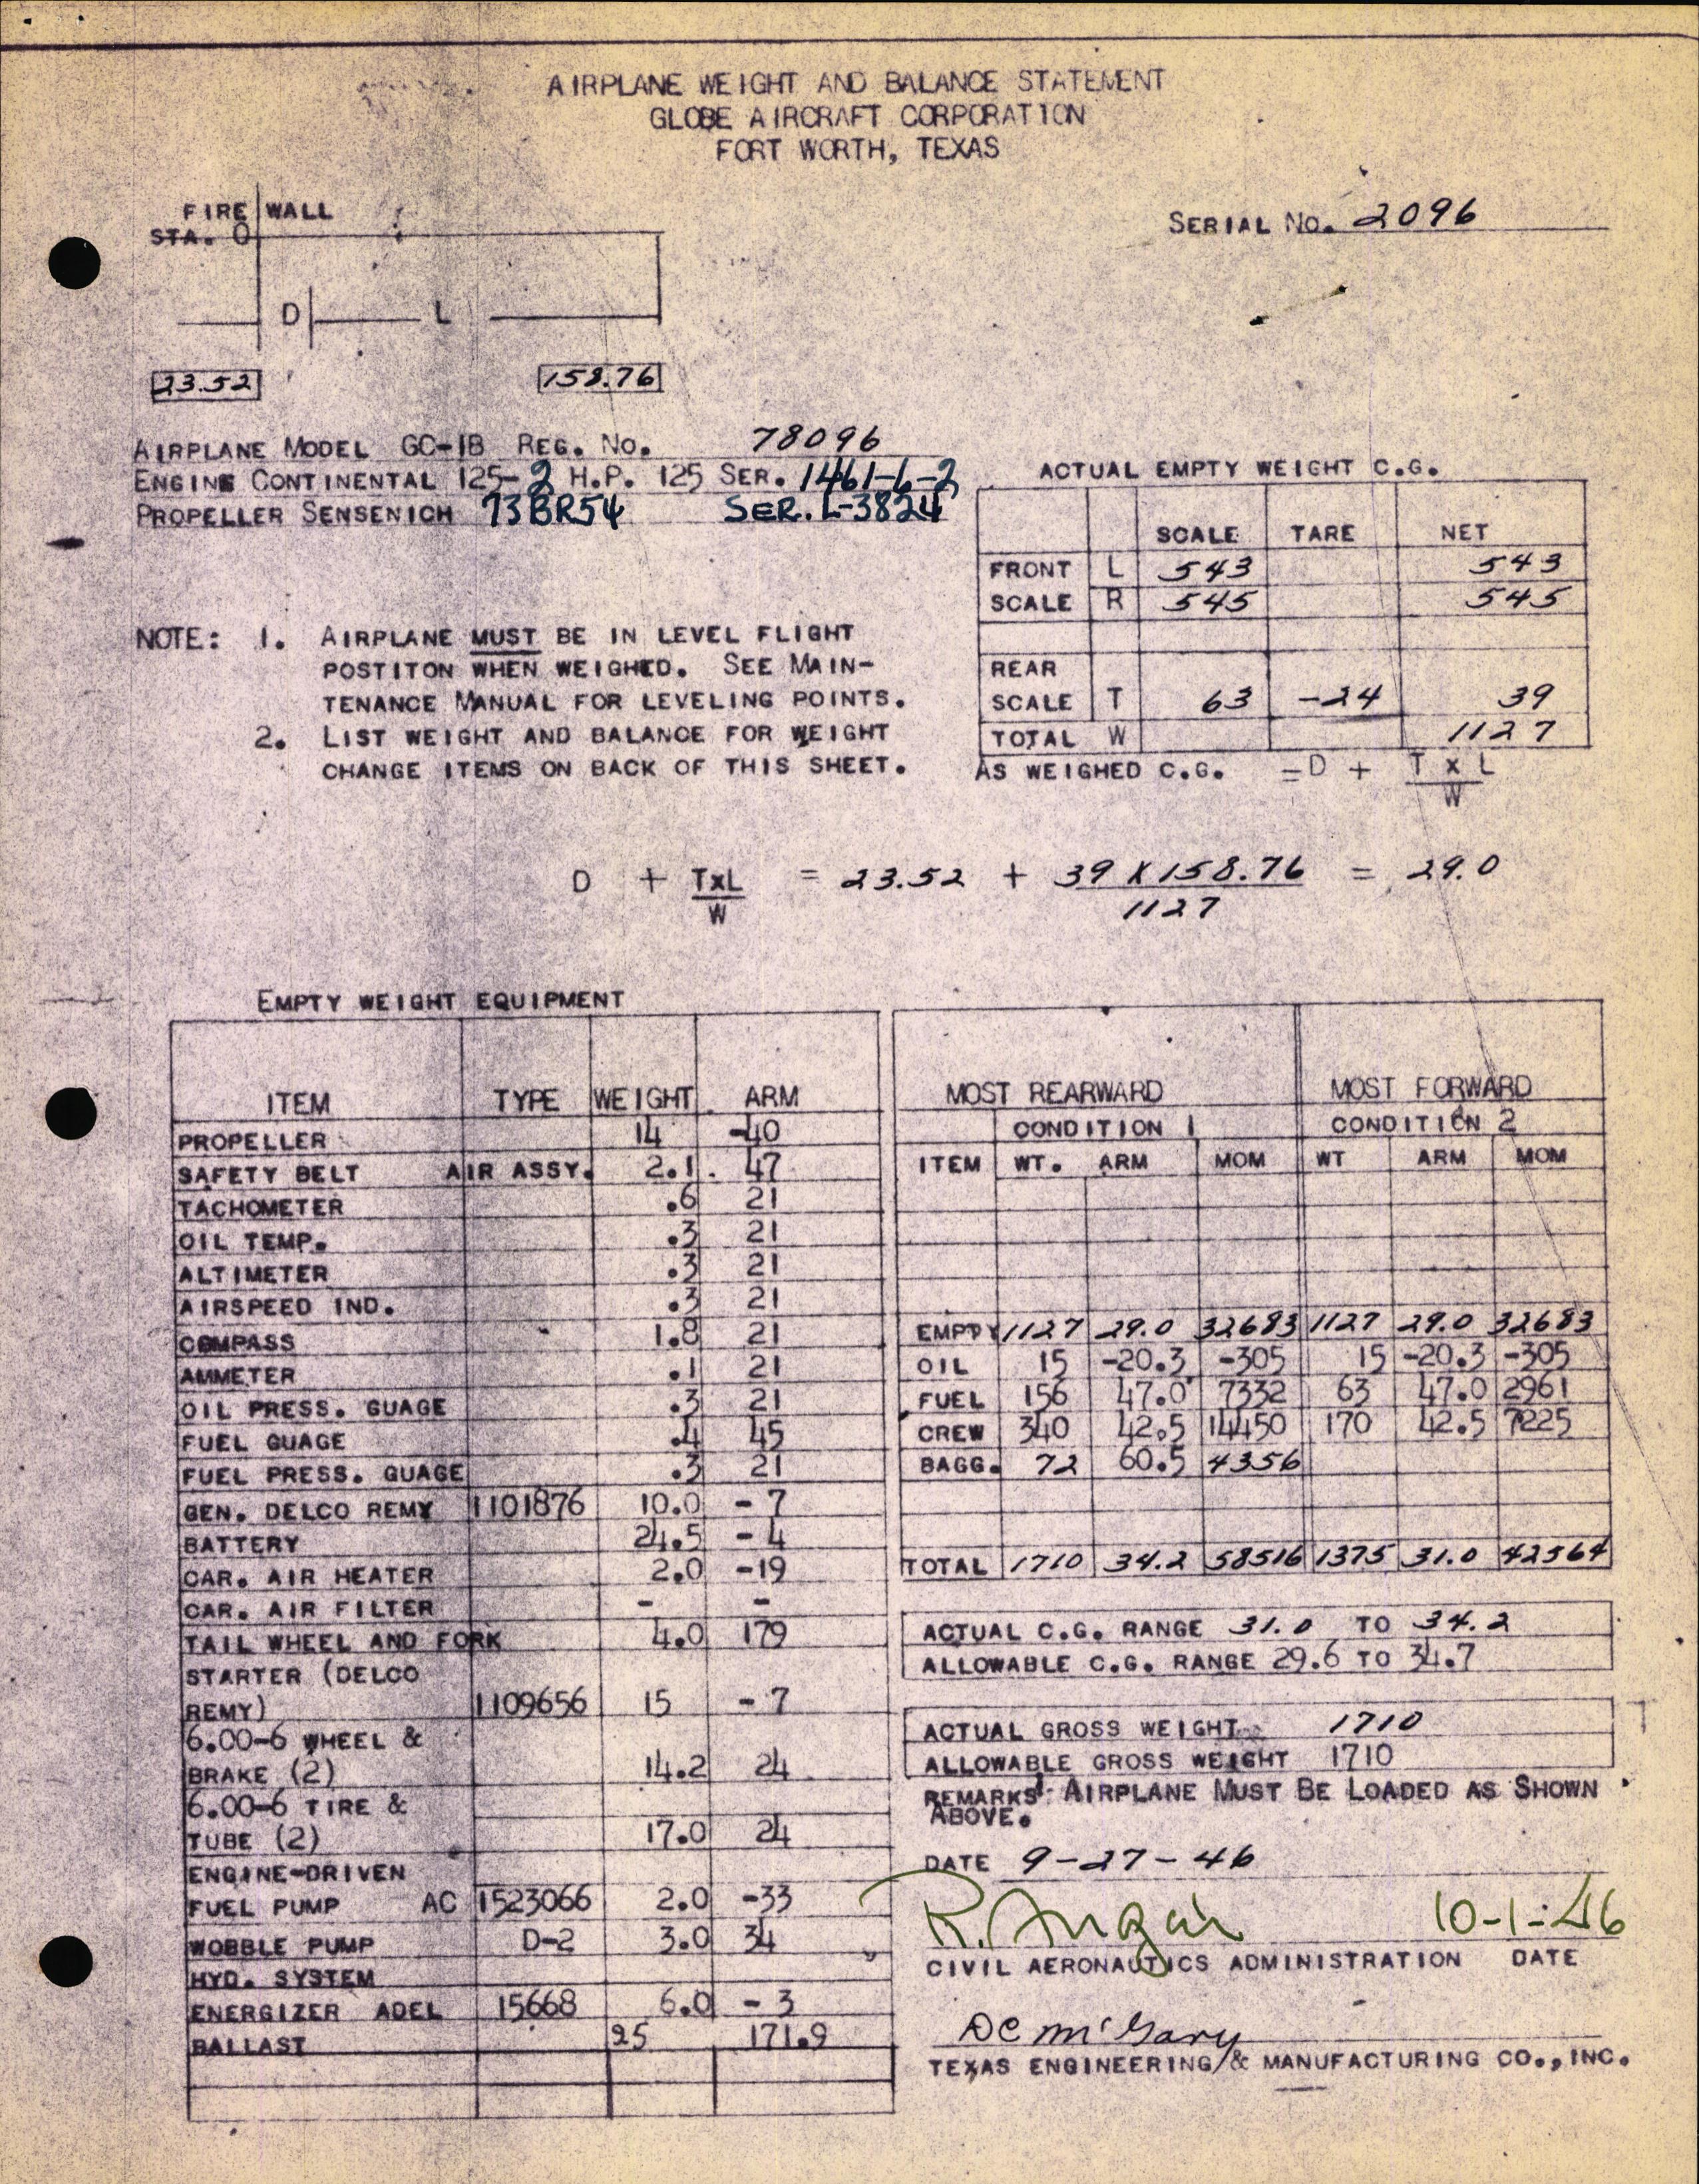 AIRPLANE WEIGHT AND BALANCE STATEMENT
GLOBE AIRCRAFT CORPORATION
FORT WORTH, TEXAS
FIRE WALL
STA. 0
SERIAL NO. 2096
D L
23.52 158.76
AIRPLANE MODEL GC-1B REG. NO. 78096
ENGINE CONTINENTAL 125-2 H.P. 125 SER. 1461-6-2
PROPELLER SENSENICH 73BR54 SER. L-3824
ACTUAL EMPTY WEIGHT C.G.
SCALE TARE NET
FRONT L 543 543
SCALE R 545 545
REAR
SCALE T 63 -24 39
TOTAL W 1127
AS WEIGHED C.G. = D + T x L
W
NOTE: 1. AIRPLANE MUST BE IN LEVEL FLIGHT
POSTITON WHEN WEIGHED. SEE MAIN-
TENANCE MANUAL FOR LEVELING POINTS.
2. LIST WEIGHT AND BALANCE FOR WEIGHT
CHANGE ITEMS ON BACK OF THIS SHEET.
D + TxL = 23.52 + 39 X 158.76 = 29.0
W 1127
EMPTY WEIGHT EQUIPMENT
ITEM TYPE WEIGHT ARM
PROPELLER 14 -40
SAFETY BELT AIR ASSY. 2.1 47
TACHOMETER .6 21
OIL TEMP. .3 21
ALTIMETER .3 21
AIRSPEED IND. .3 21
COMPASS 1.8 21
AMMETER .1 21
OIL PRESS. GUAGE .3 21
FUEL GUAGE .4 45
FUEL PRESS. GUAGE .3 21
GEN. DELCO REMY 1101876 10.0 - 7
BATTERY 24.5 - 4
CAR. AIR HEATER 2.0 -19
CAR. AIR FILTER - -
TAIL WHEEL AND FORK 4.0 179
STARTER (DELCO
REMY) 1109656 15 - 7
6.00-6 WHEEL &
BRAKE (2) 14.2 24
6.00-6 TIRE &
TUBE (2) 17.0 24
ENGINE-DRIVEN
FUEL PUMP AC 1523066 2.0 -33
WOBBLE PUMP D-2 3.0 34
HYD. SYSTEM
ENERGIZER ADEL 15668 6.0 - 3
BALLAST 25 171.9
MOST REARWARD MOST FORWARD
CONDITION 1 CONDITION 2
ITEM WT. ARM MOM WT ARM MOM
EMPTY 1127 29.0 32683 1127 29.0 32683
OIL 15 -20.3 -305 15 -20.3 -305
FUEL 156 47.0 7332 63 47.0 2961
CREW 340 42.5 14450 170 42.5 7225
BAGG. 72 60.5 4356
TOTAL 1710 34.2 58516 1375 31.0 42564
ACTUAL C.G. RANGE 31.0 TO 34.2
ALLOWABLE C.G. RANGE 29.6 TO 34.7
ACTUAL GROSS WEIGHT 1710
ALLOWABLE GROSS WEIGHT 1710
REMARKS: AIRPLANE MUST BE LOADED AS SHOWN
ABOVE.
DATE 9-27-46
R. 10-1-46
CIVIL AERONAUTICS ADMINISTRATION DATE
DC McGary
TEXAS ENGINEERING & MANUFACTURING CO., INC.